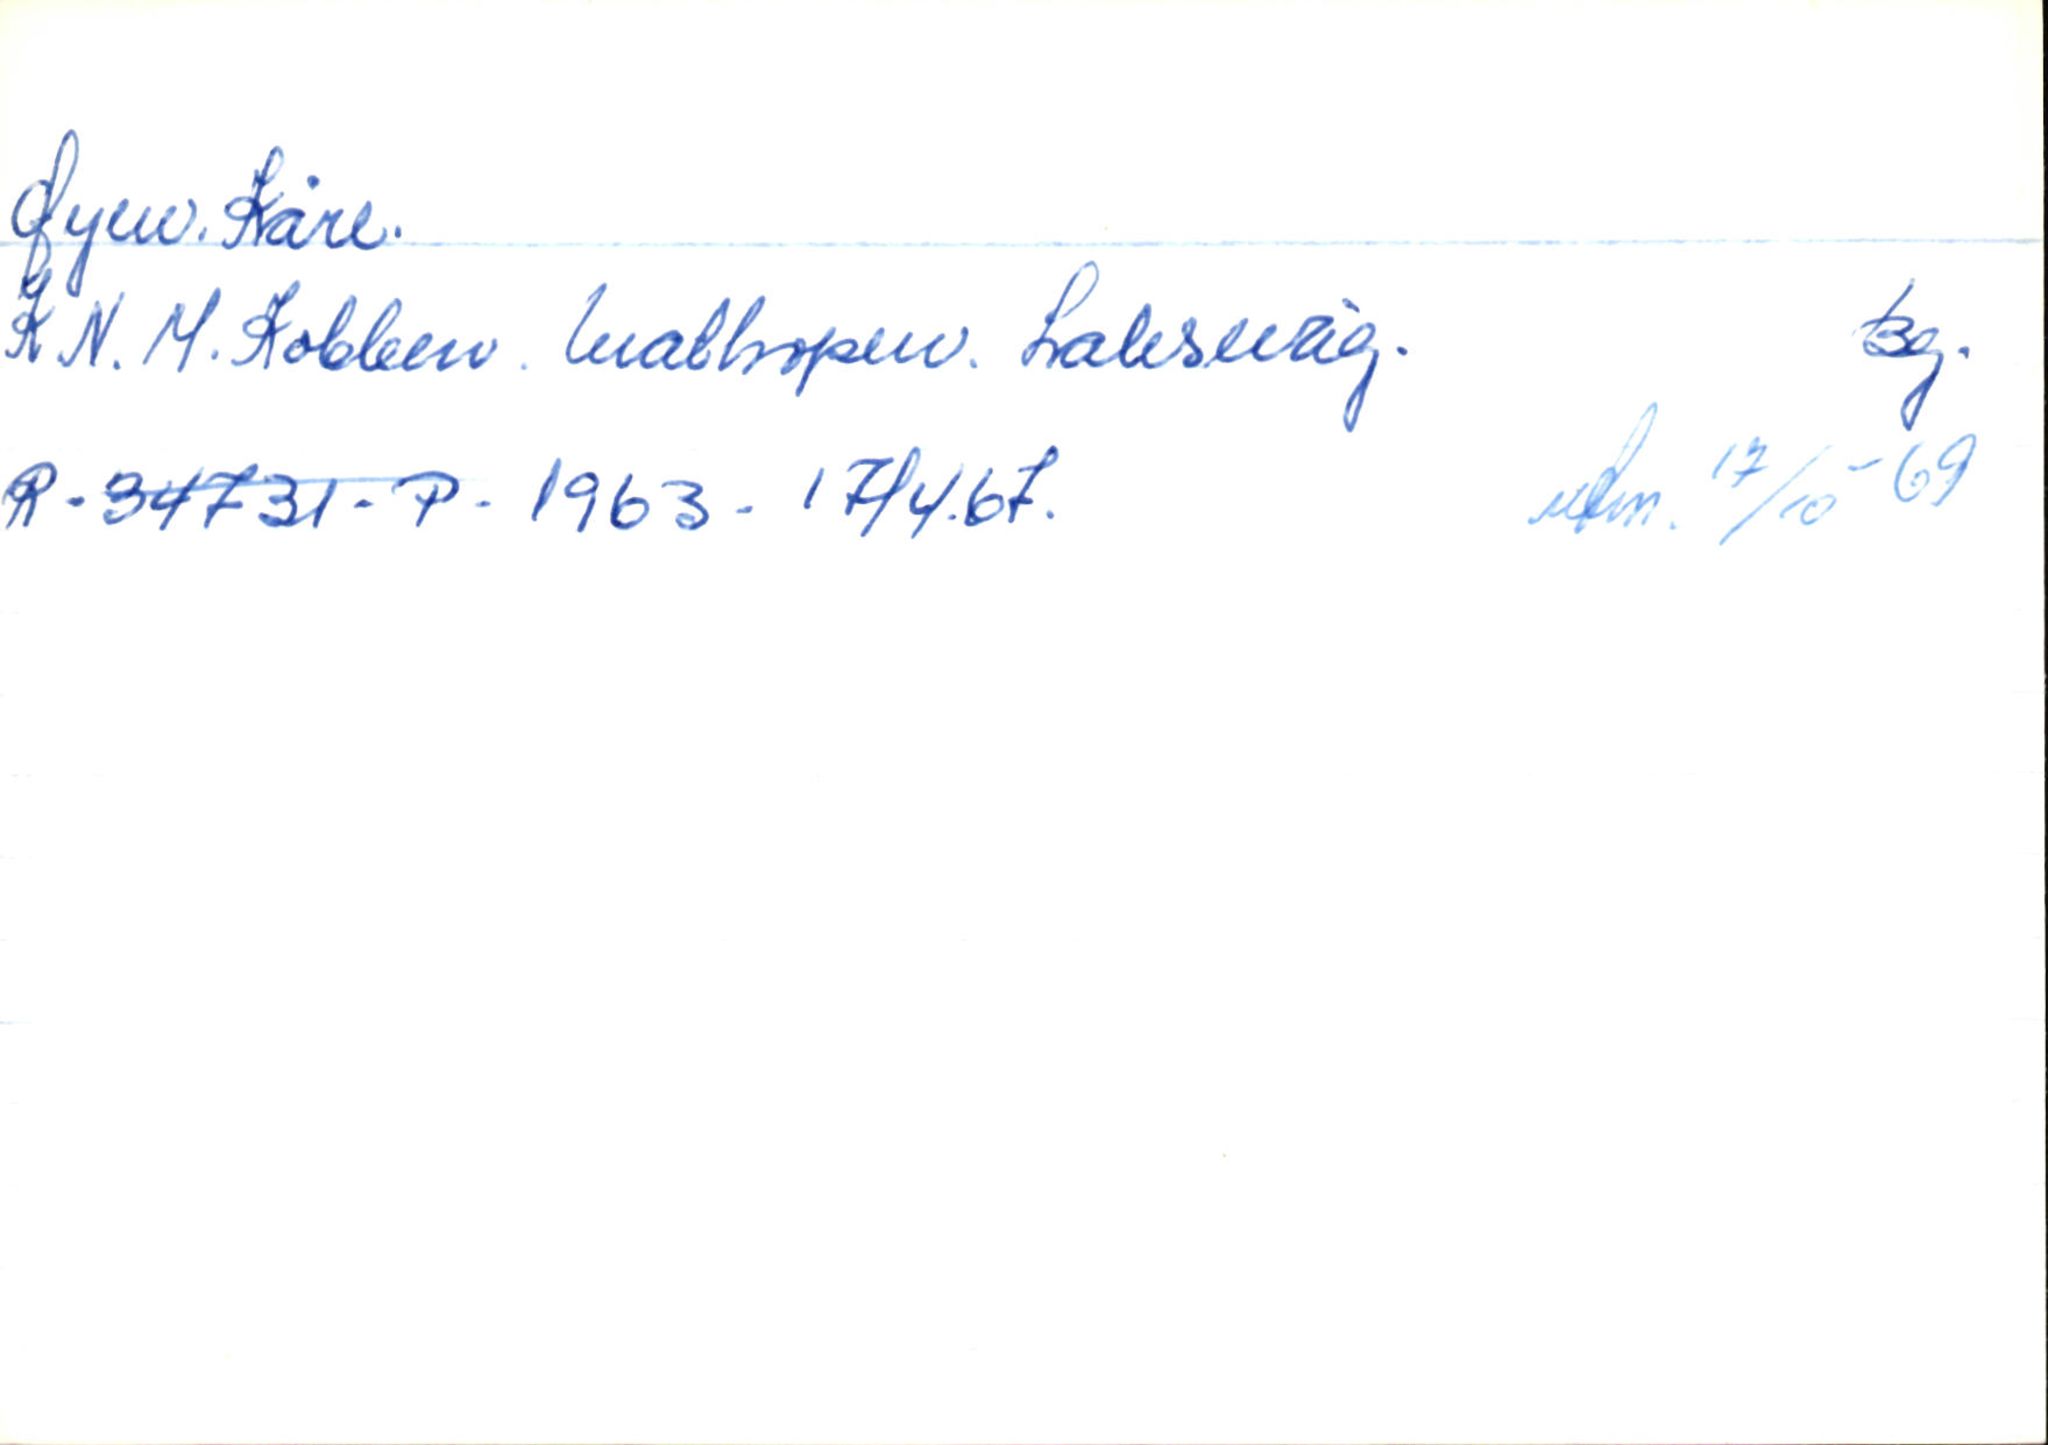 Fyen. Kåre.
K N. M. Kobben. Mathopen. Laksevåg. Bg.
R - 34731 - P - 1963 - 17/4.67. utm. 17/10-69